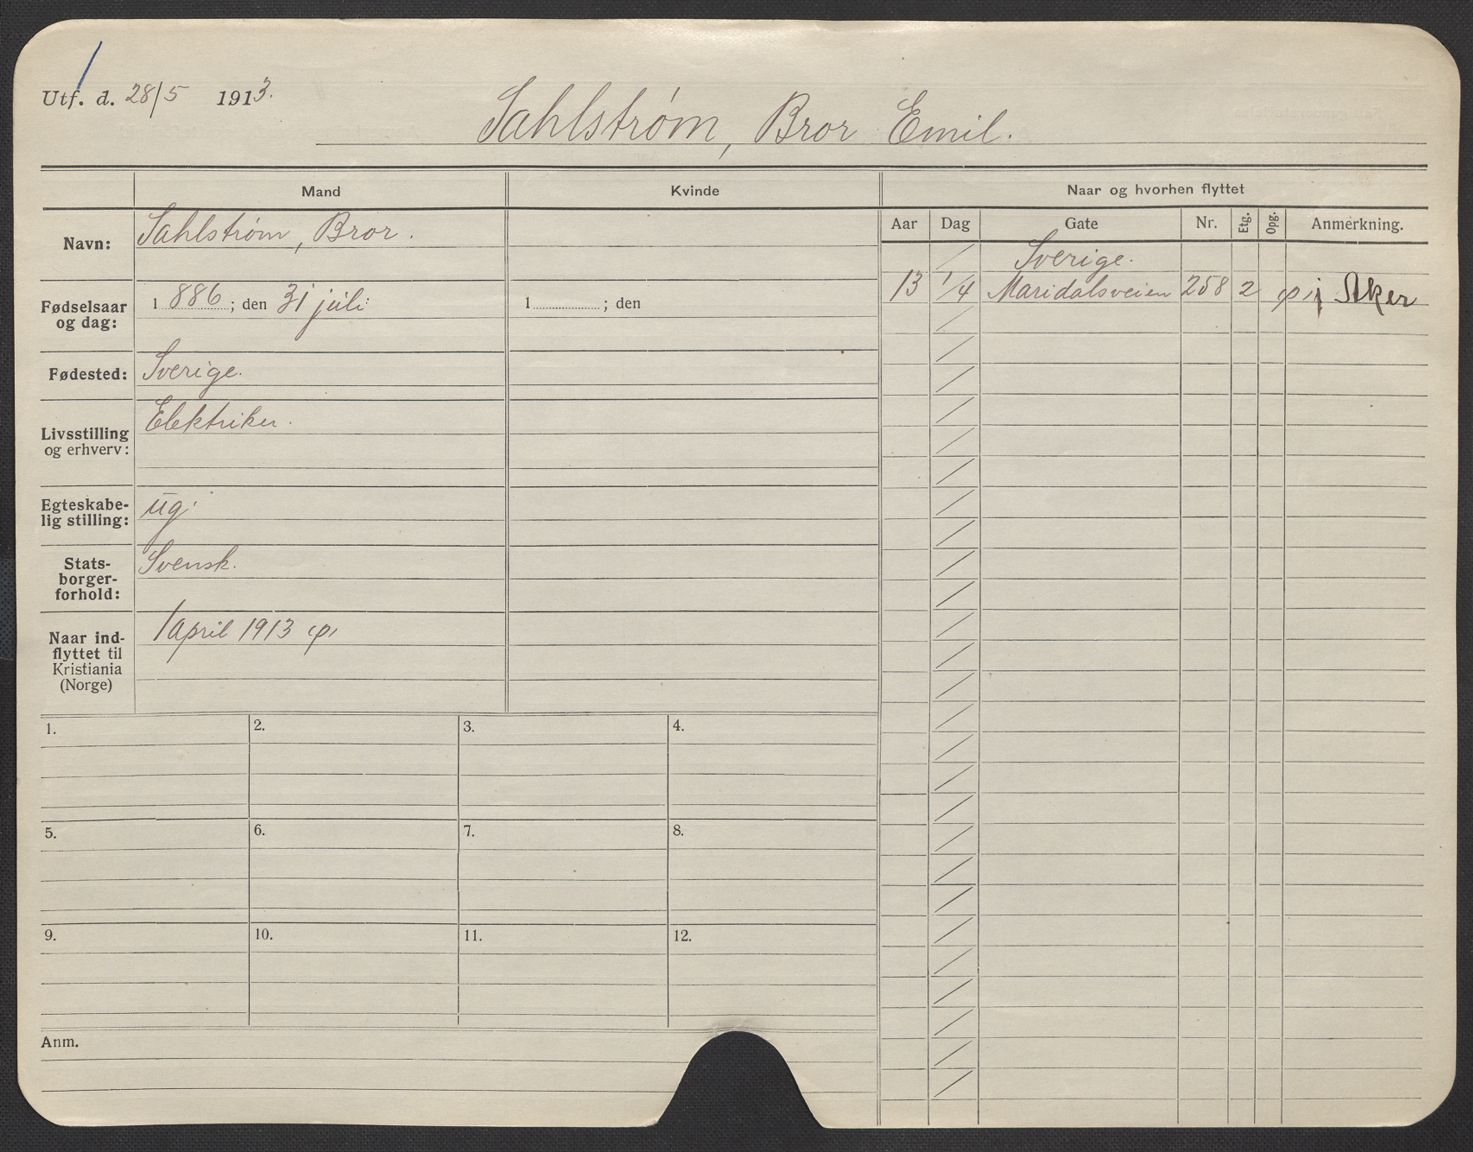 Utf. d. 28/5 1913.
Sahlstrøm, Bror Emil.
Mand
Kvinde
Naar og hvorhen flyttet
Aar Dag Gate Nr. Etg. Opg. Anmerkning.
Navn: Sahlstrøm, Bror.
Fødselsaar og dag: 1 886 ; den 31 juli
1 ; den
Fødested: Sverige.
Livsstilling og erhverv: Elektriker.
Egteskabelig stilling: ug.
Statsborgerforhold: Svensk.
Naar indflyttet til Kristiania (Norge) 1 april 1913 φ,
Sverige.
13 1/4 Maridalsveien 258 2 φ, i Aker
1. 2. 3. 4.
5. 6. 7. 8.
9. 10. 11. 12.
Anm.